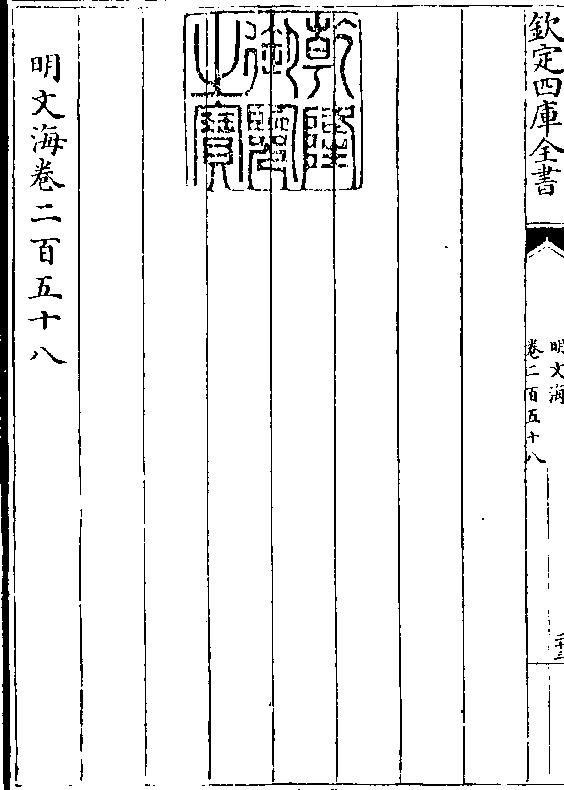 欽定四庫全書
明文海
卷二百五十八
乾隆
御覽
之寶
明文海卷二百五十八